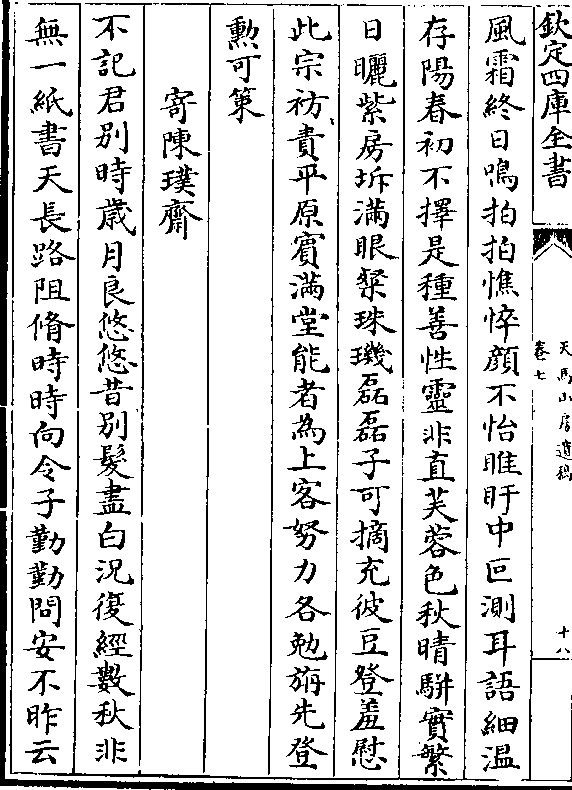 欽定四庫全書
天馬山房遺稿
卷七
十八
風霜終日鳴拍拍憔悴顔不怡睢盱中叵測耳語細温
存陽春初不擇是種善性靈非直芙蓉色秋晴駢實繁
日曬紫房坼滿眼粲珠璣磊磊子可摘充彼豆登羞慰
此宗祊責平原賓滿堂能者為上客努力各勉旃先登
勲可策
寄陳璞齋
不記君别時歳月良悠悠昔别髮盡白況復經數秋非
無一紙書天長路阻脩時時向令子勤勤問安不昨云